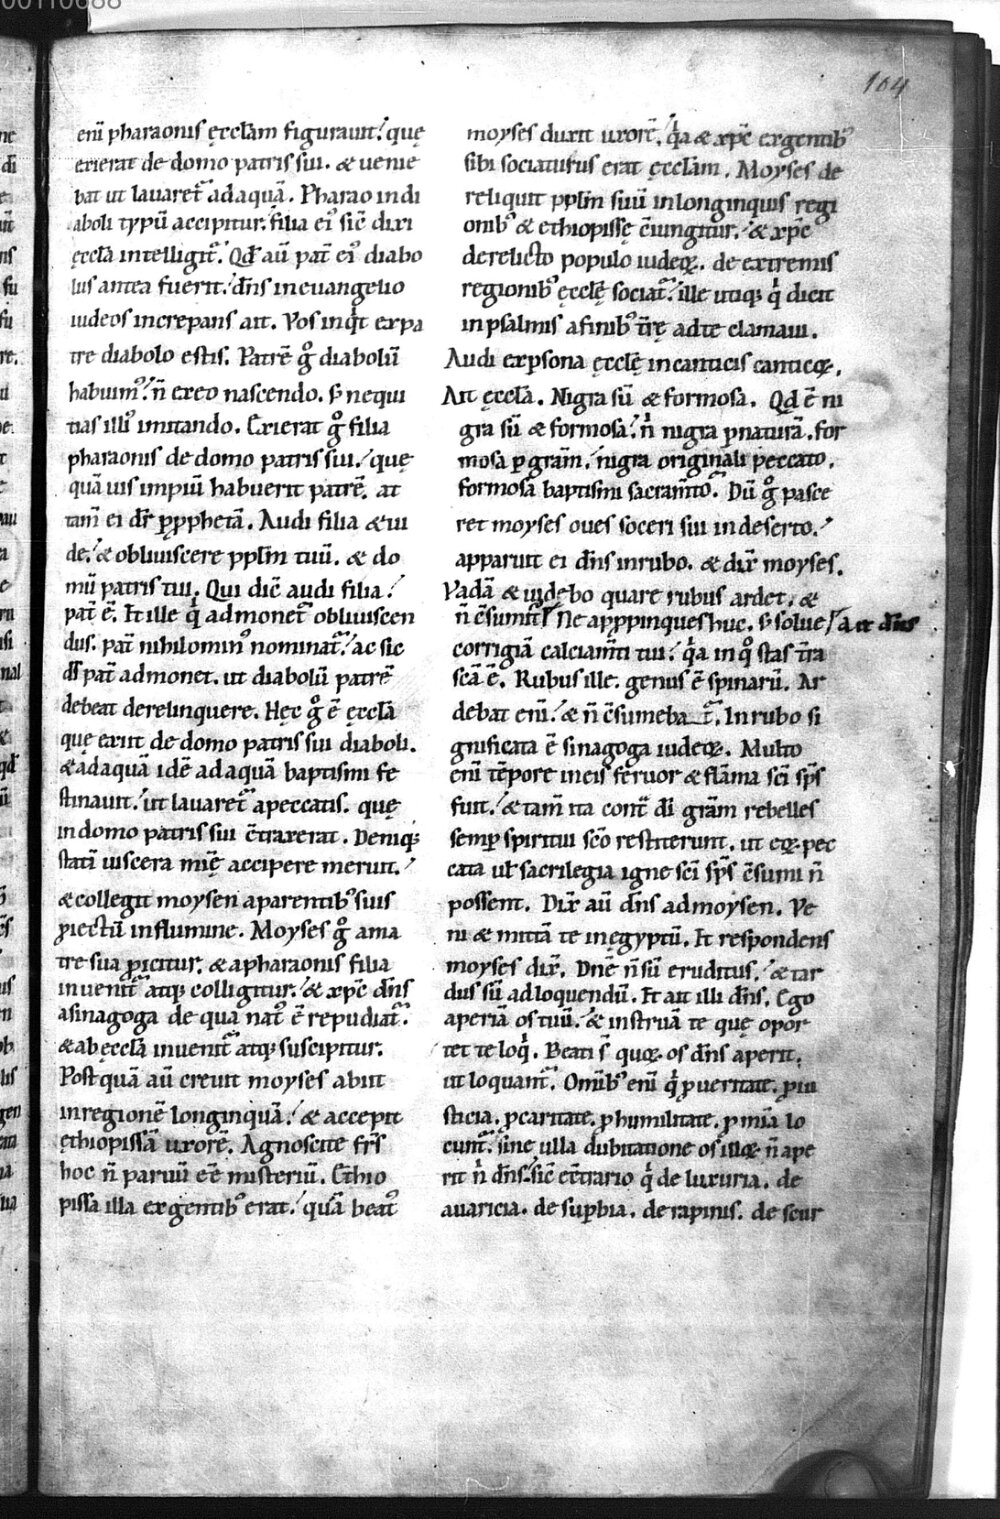 104
enī pharaonis ęcclam figurauit. quę
exierat de domo patris sui. & uenie
bat ut lauaret̄ ad aquā. Pharao in di
aboli typū accipitur. filia ei᷒ sic̄ dixi
ęccla intelligit̄. Qd̄ aū pat̄ ei᷒ diabo
lus antea fuerit. dn̄s in euangelio
iudeos increpans ait. Vos inqͥt ex pa
tre diabolo estis. Patrē gͦ diabolū
habuim᷒. n̄ ex eo nascendo. ſꝫ nequi
tias illi᷒ imitando. Exierat gͦ filia
pharaonis de domo patris sui. quę
quāuis impiū habuerit patrē. at
tam̄ ei dr̄ ꝑ ꝓphetā. Audi filia & ui
de. & obliuiscere pplm̄ tuū. & do
mū patris tui. Qui dic̄ audi filia.
pat̄ ē. Et ille qͥ admonet̄ obliuiscen
dus. pat̄ nihilomin᷒ nominat̄. ac sic
ds̄ pat̄ admonet. ut diabolū patrē
debeat derelinquere. Hęc gͦ ē ęccla
quę exiit de domo patris sui diaboli.
& ad aquā idē ad aquā baptismi fe
stinauit. ut lauaret̄ a peccatis. quę
in domo patris sui c̄traxerat. Deniqꝫ
statī uiscera mīę accipere meruit.
& collegit moysen a parentib᷒ suis
ꝓiectū in flumine. Moyses gͦ a ma
tre sua ꝓicitur. & a pharaonis filia
inuenit̄ atqꝫ colligitur. & xp̄c dn̄s
a sinagoga de qua nat᷒ ē repudiat̄.
& ab ęccla inuenit̄ atqꝫ suscipitur.
Post quā aū creuit moyses abiit
in regionē longinquā. & accepit
ęthiopissā uxorē. Agnoscite frs̄
hoc n̄ paruū eē misteriū. Ethio
pissa illa ex gentib᷒ erat. quā beat᷒
moyses duxit uxorē. qͥa & xp̄c ex gentib᷒
sibi sociaturus erat ęcclam. Moyses de
reliquit pplm̄ suū in longinquis regi
onib᷒ & ethiopissę c̄iungitur. & xp̄c
derelicto populo iudeoꝝ. de extremis
regionib᷒ ęcclę sociat̄. ille utiqꝫ qͥ dicit
in psalmis a finib᷒ tr̄ę ad te clamaui.
Audi ex ꝑsona ęcclę in canticis canticoꝝ.
Ait ęccla. Nigra sū & formosa. Qd̄ ē ni
gra sū & formosa. nͥ nigra ꝑ naturā. for
mosa ꝑ gram̄. nigra originali peccato.
formosa baptismi sacram̄to. Dū gͦ pasce
ret moyses oues soceri sui in deserto.
apparuit ei dn̄s in rubo. & dix̄ moyses.
Vadā & uidebo quare rubus ardet. &
n̄ c̄sumit̄. Ne appropinques huc. ſꝫ solue Ait dn̄s
corrigiā calciam̄ti tui. qͥa in qͦ stas tr̄a
scā ē. Rubus ille. genus ē spinarū. Ar
debat enī. & n̄ c̄sumebat̄. In rubo si
gnificata ē sinagoga iudeoꝝ. Multo
enī tēpore in eis feruor & flāma sci sp̄s
fuit. & tam̄ ita cont̄ di gram̄ rebelles
semꝑ spiritui sc̄o restiterunt. ut eoꝝ pec
cata ul̄ sacrilegia igne sci sp̄s c̄sumi n̄
possent. Dix̄ aū dn̄s ad moysen. Ve
ni & mittā te in ęgyptū. Et respondens
moyses dix̄. Dn̄e n̄ sū eruditus. & tar
dus sū ad loquendū. Et ait illi dn̄s. Ego
aperiā os tuū. & instruā te quę opor
tet te loqͥ. Beati s̄ quoꝝ os dn̄s aperit.
ut loquant̄. Omīb᷒ enī qͥ ꝓ ueritate. ꝓ iu
sticia. ꝓ caritate. ꝓ humilitate. ꝓ mīa lo
cunt̄. sine ulla dubitatione os illoꝝ n̄ ape
rit nͥ dn̄s. sic̄ ec̄trario qͥ de luxuria. de
auaricia. de suꝑbia. de rapinis. de scur